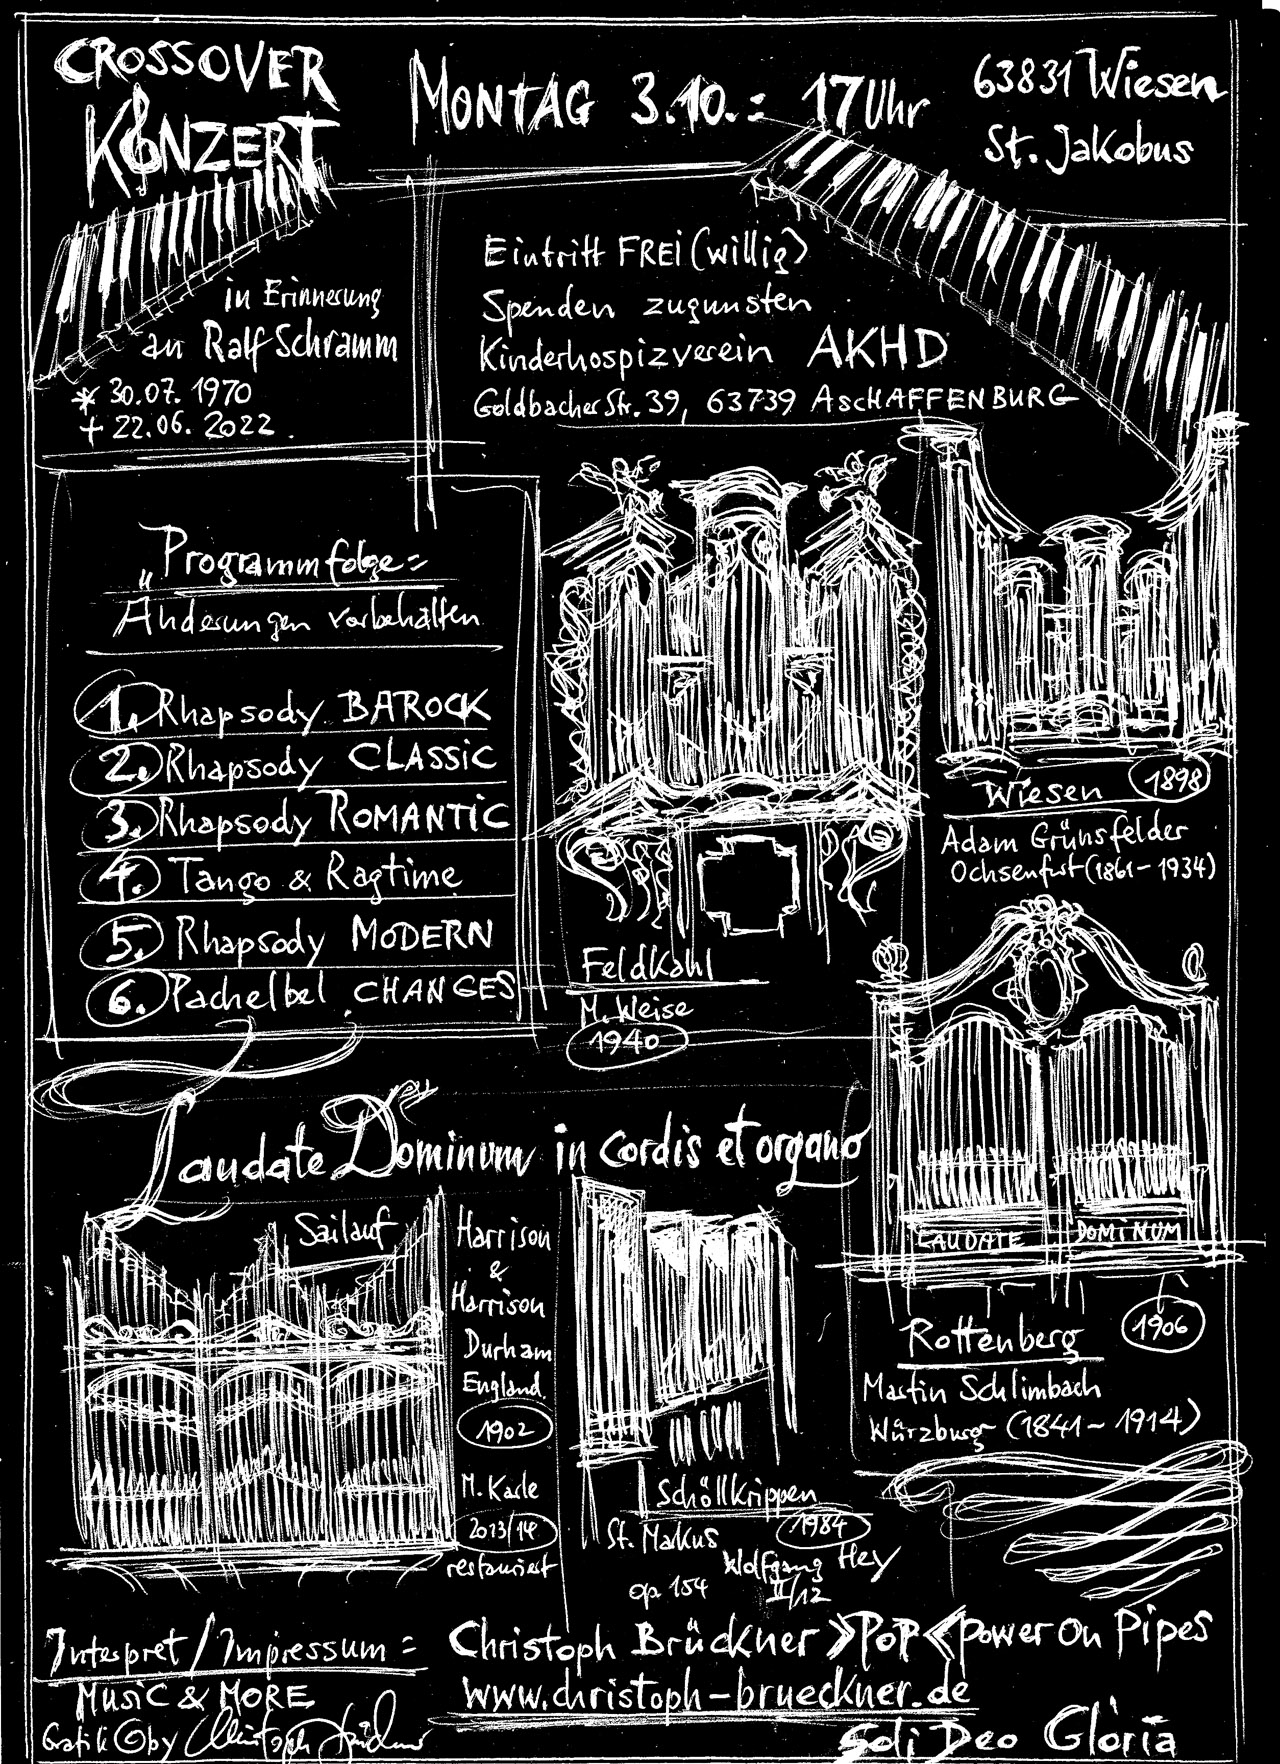 CROSSOVER
KONZERT
MONTAG 3.10.: 17 Uhr
63831 Wiesen
St. Jakobus
in Erinnerung
an Ralf Schramm
* 30.07. 1970
+ 22.06. 2022.
Eintritt FREI (willig)
Spenden zugunsten
Kinderhospizverein AKHD
Goldbacher Str. 39, 63739 ASCHAFFENBURG
"Programmfolge=
Änderungen vorbehalten
1. Rhapsody BAROCK
2. Rhapsody CLASSIC
3. Rhapsody ROMANTIC
4. Tango & Ragtime
5. Rhapsody MODERN
6. Pachelbel CHANGES
Feldkahl
M. Weise
1940
Wiesen 1898
Adam Grünsfelder
Ochsenfurt (1861-1934)
Laudate Dominum in cordis et organo
LAUDATE DOMINUM
Rottenberg 1906
Martin Schlimbach
Würzburg (1841-1914)
Sailauf
Harrison
&
Harrison
Durham
England.
1902
M. Karle
2013/14
restauriert
Schöllkrippen
St. Markus 1984
Wolfgang Hey
op 154 II/12
Interpret / Impressum =
MUSIC & MORE
Grafik © by Christoph Brückner
Christoph Brückner »PoP« Power On Pipes
www.christoph-brueckner.de
Soli Deo Gloria